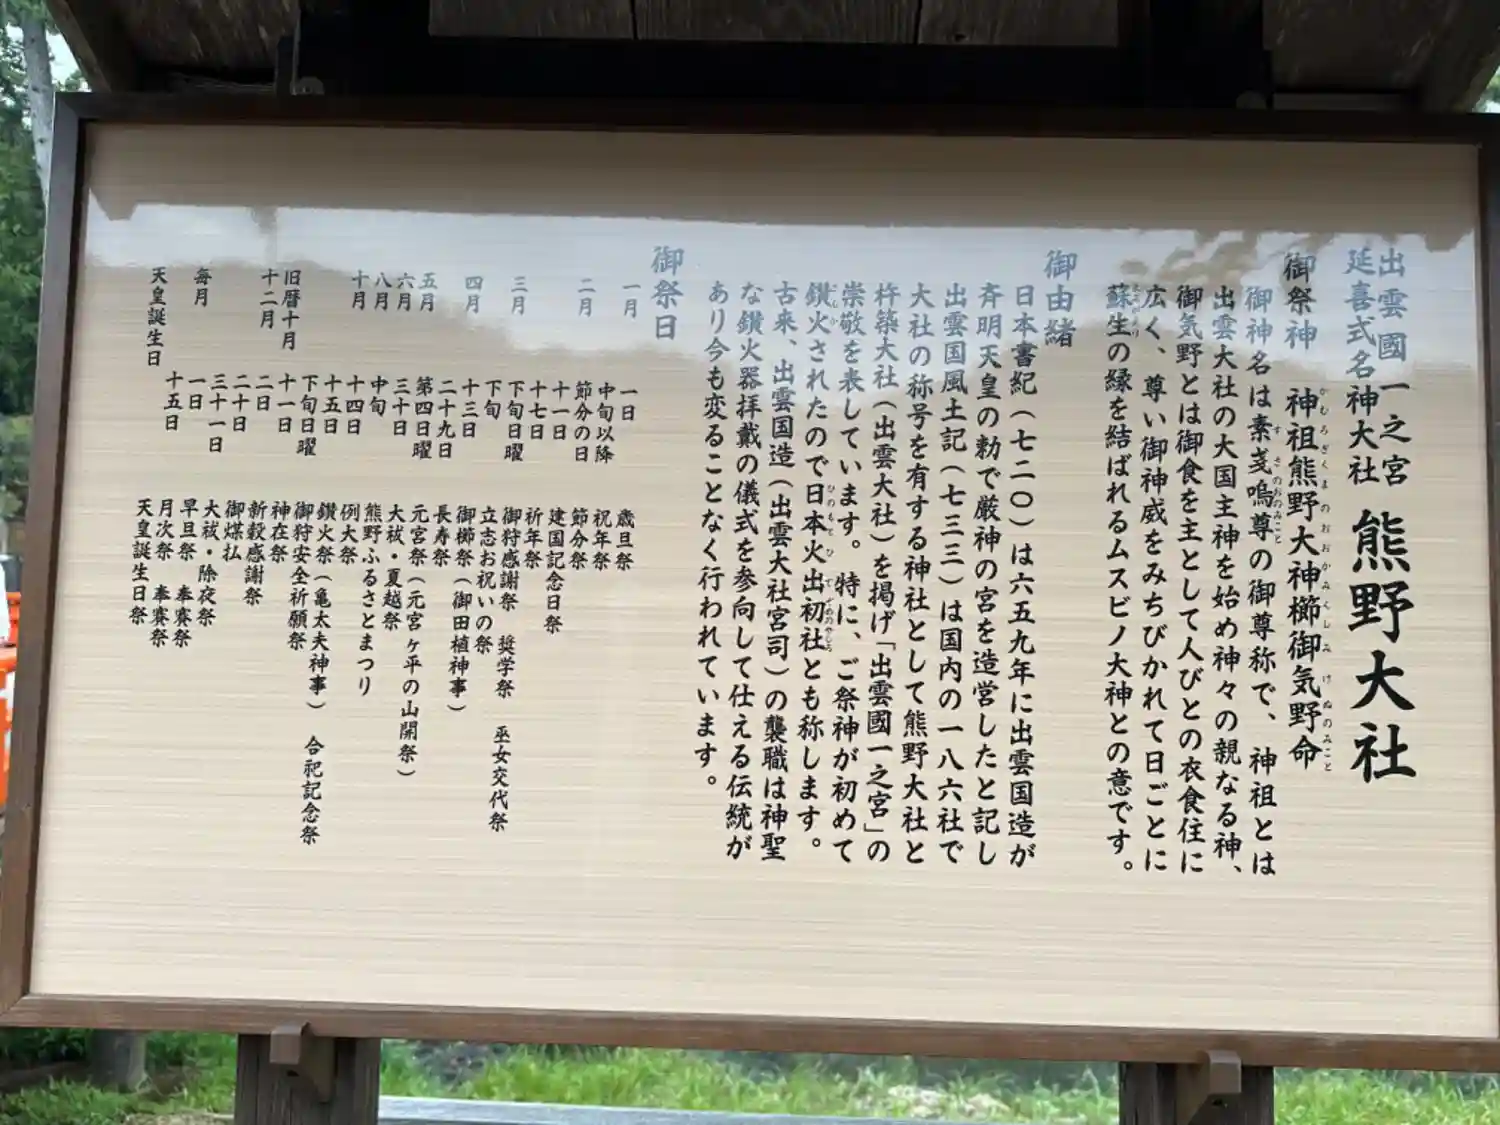 出雲國一之宮
延喜式名神大社 熊野大社
御祭神 神祖熊野大神櫛御気野命
かむろぎくまのおおかみくしみけぬのみこと
御神名は素戔嗚尊の御尊称で、神祖とは
すさのおのみこと
出雲大社の大国主神を始め神々の親なる神、
御気野とは御食を主として人びとの衣食住に
広く、尊い御神威をみちびかれて日ごとに
蘇生の縁を結ばれるムスビノ大神との意です。
御由緒
日本書紀(七二〇)は六五九年に出雲国造が
斉明天皇の勅で厳神の宮を造営したと記し
出雲国風土記(七三三)は国内の一八六社で
大社の称号を有する神社として熊野大社と
杵築大社(出雲大社)を掲げ「出雲國一之宮」の
崇敬を表しています。特に、ご祭神が初めて
鑚火されたので日本火出初社とも称します。
さんか ひのもとひでぞめのやしろ
古来、出雲国造(出雲大社宮司)の襲職は神聖
な鑚火器拝戴の儀式を参向して仕える伝統が
あり今も変ることなく行われています。
御祭日
一月 一日 歳旦祭
中旬以降 祝年祭
二月 節分の日 節分祭
十一日 建国記念日祭
十七日 祈年祭
三月 下旬日曜 御狩感謝祭 奨学祭 巫女交代祭
下旬 立志お祝いの祭
四月 十三日 御櫛祭(御田植神事)
二十九日 長寿祭
五月 第四日曜 元宮祭(元宮ヶ平の山開祭)
六月 三十日 大祓・夏越祭
八月 中旬 熊野ふるさとまつり
十月 十四日 例大祭
十五日 鑽火祭(亀太夫神事) 合祀記念祭
下旬日曜 御狩安全祈願祭
旧暦十月 十一日 神在祭
十二月 二日 新穀感謝祭
二十日 御煤払
三十一日 大祓・除夜祭
毎月 一日 早旦祭 奉賽祭
十五日 月次祭 奉賽祭
天皇誕生日 天皇誕生日祭